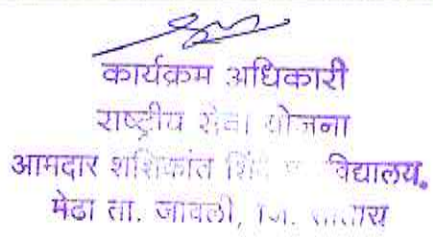 कार्यक्रम अधिकारी
राष्ट्रीय सेवा योजना
आमदार शशिकांत विद्यालय.
मेढा ता. जावली, जि. सातारा